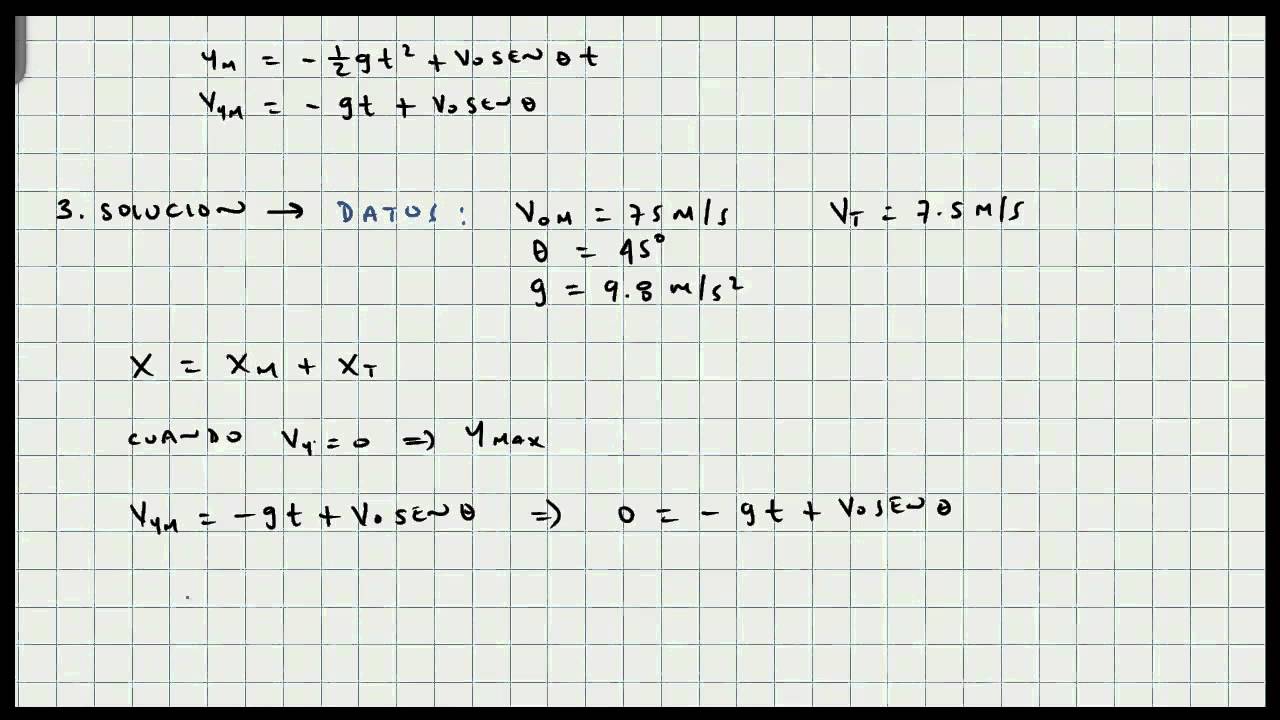 Y_M = - 1/2 g t² + V₀ SEN θ t
V_YM = - g t + V₀ SEN θ
3. SOLUCION → DATOS: V_0M = 75 M/S V_T = 7.5 M/S
θ = 45°
g = 9.8 M/S²
X = X_M + X_T
CUANDO V_Y = 0 ⇒ Y_MAX
V_YM = - g t + V₀ SEN θ ⇒ 0 = - g t + V₀ SEN θ